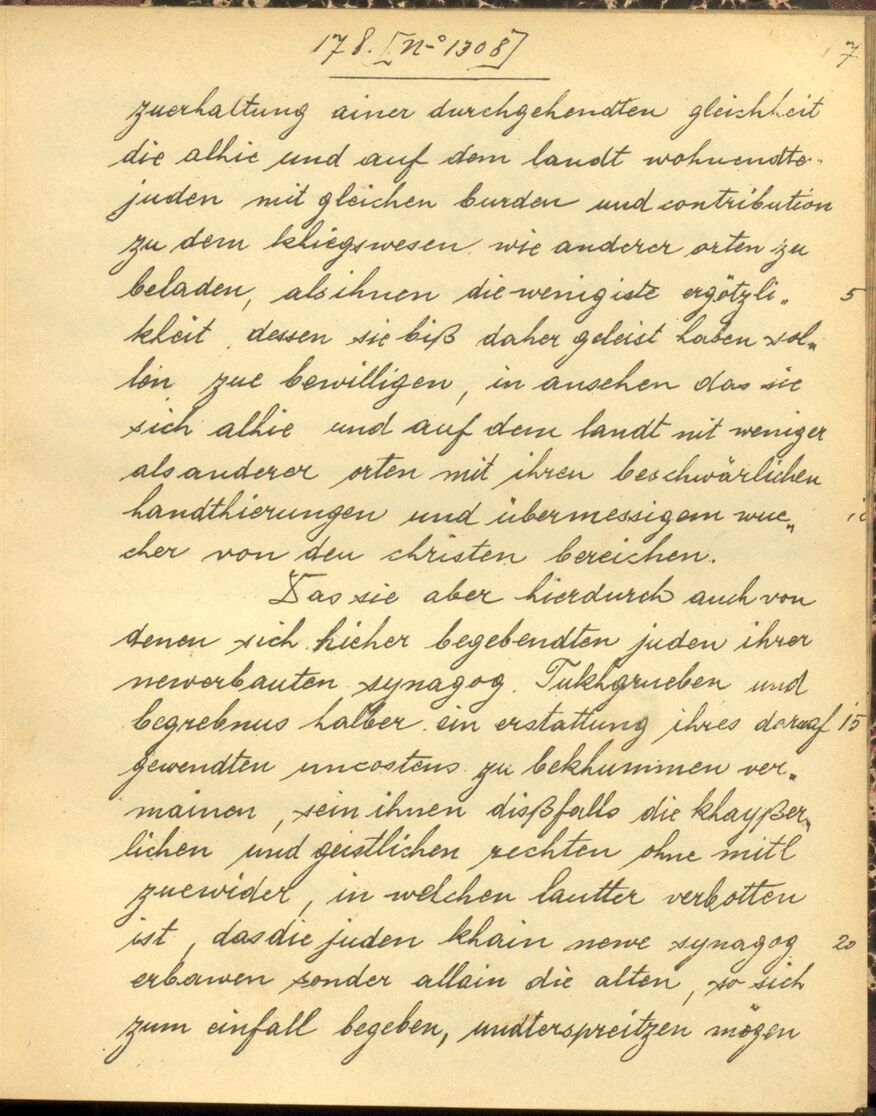 178. [No 1308]
7
zuerhaltung ainer durchgehendten gleichheit
die alhie und auf dem landt wohnendte
juden mit gleichen burden und contribution
zu dem khiegswesen wie anderer orten zu
beladen, als ihnen die wenigiste ergötzli„ 5
kheit dessen sie biß daher geleist haben sol„
len zue bewilligen, in ansehen das sie
sich alhie und auf dem landt nit weniger
als anderer orten mit ihren beschwärlichen
handthierungen und übermessigem wue„ 10
cher von den christen bereichen.
Das sie aber hierdurch auch von
denen sich hieher begebendten juden ihrer
newerbauten synagog. Tukhgrueben und
begrebnus halber ein erstattung ihres darauf 15
gewendten uncostens zu bekhummen ver„
mainen, sein ihnen dißfalls die khayßer„
lichen und geistlichen rechten ohne mitl
zuewider, in welchen lautter verbotten
ist, das die juden khain newe synagog 20
erbawen sonder allain die alten, so sich
zum einfall begeben, undterspreitzen mögen